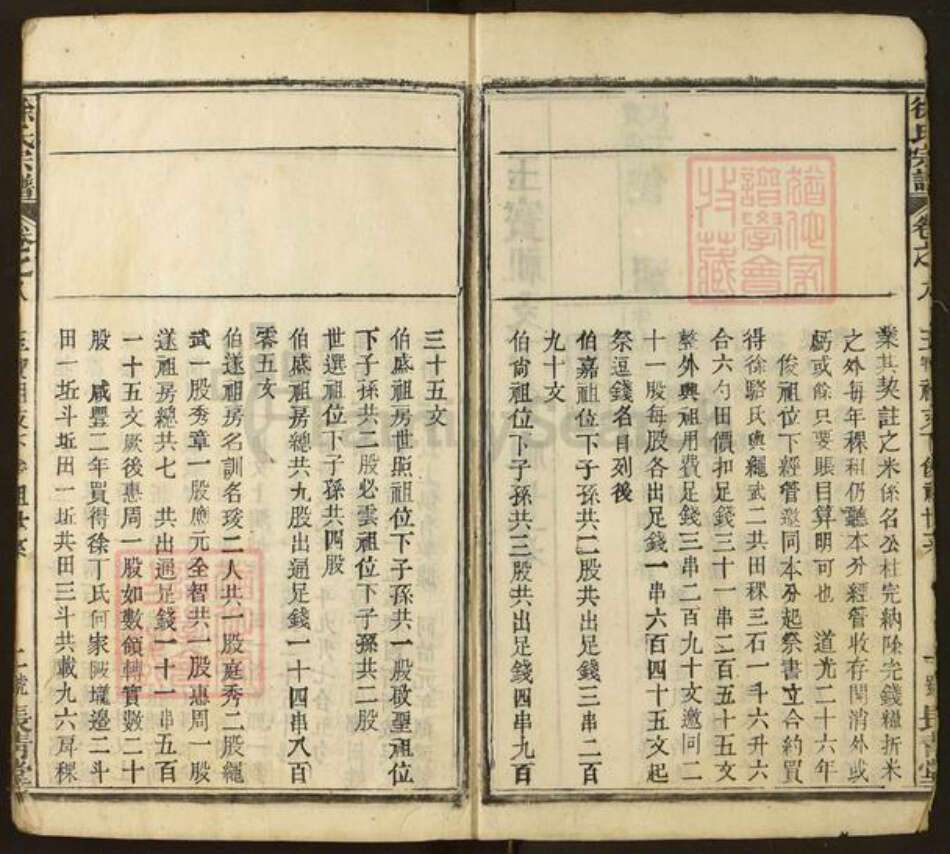 徐氏宗譜
卷之八
業其契註之米係名公柱完納除完錢糧折米
之外每年稞租仍聽本分經管收存開消外或
虧或餘只要賬目算明可也 道光二十六年
俊祖位下經管邀同本分起祭書立合約買
得徐駱氏與繩武二共田稞三石一斗六升六
合六勺田價扣足錢三十一串二百五十五文
整外興祖用費足錢三串二百九十文邀同二
十一股每股各出足錢一串六百四十五文起
祭逗錢名目列後
伯嘉祖位下子孫共二股共出足錢三串二百
九十文
伯尚祖位下子孫共三股共出足錢四串九百
三十五文
伯盛祖房世照祖位下子孫共一股啟聖祖位
下子孫共二股必雲祖位下子孫共二股
世選祖位下子孫共四股
伯盛祖房總共九股出通足錢一十四串八百
零五文
伯遂祖房名訓名琰二人共一股庭秀二股繩
武一股秀章一股應元全智共一股惠周一股
遂祖房總共七 共出通足錢一十一串五百
一十五文厥後惠周一股如數領轉實數二十
股 咸豐二年買得徐丁氏何家陂壠邊二斗
田一坵斗坵田一坵共田三斗共載九六斛稞
徐氏宗譜
卷之八
二號長青堂